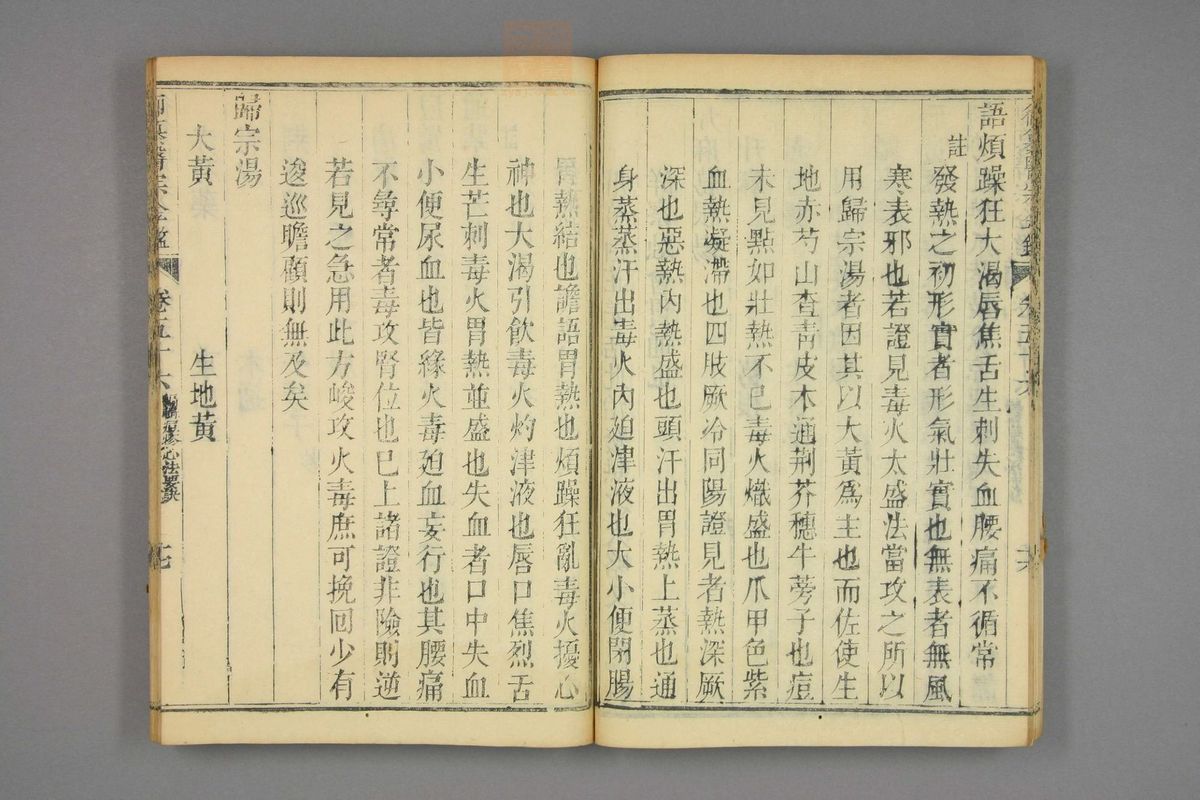 語煩躁狂大渴唇焦舌生刺失血腰痛不循常
註
發熱之初形實者形氣壯實也無表者無風
寒表邪也若證見毒火太盛法當攻之所以
用歸宗湯者因其以大黃爲主也而佐使生
地赤芍山查青皮木通荆芥穗牛蒡子也痘
未見點如壯熱不已毒火熾盛也爪甲色紫
血熱凝滯也四肢厥冷同陽證見者熱深厥
深也惡熱內熱盛也頭汗出胃熱上蒸也通
身蒸蒸汗出毒火內廹津液也大小便閉腸
胃熱結也譫語胃熱也煩躁狂亂毒火擾心
神也大渴引飲毒火灼津液也唇口焦烈舌
生芒刺毒火胃熱並盛也失血者口中失血
小便尿血也皆緣火毒廹血妄行也其腰痛
不尋常者毒攻腎位也已上諸證非險則逆
若見之急用此方峻攻火毒庶可挽回少有
逡巡瞻顧則無及矣
歸宗湯
大黃 生地黃
宗金鑑 卷五十六 心法要訣